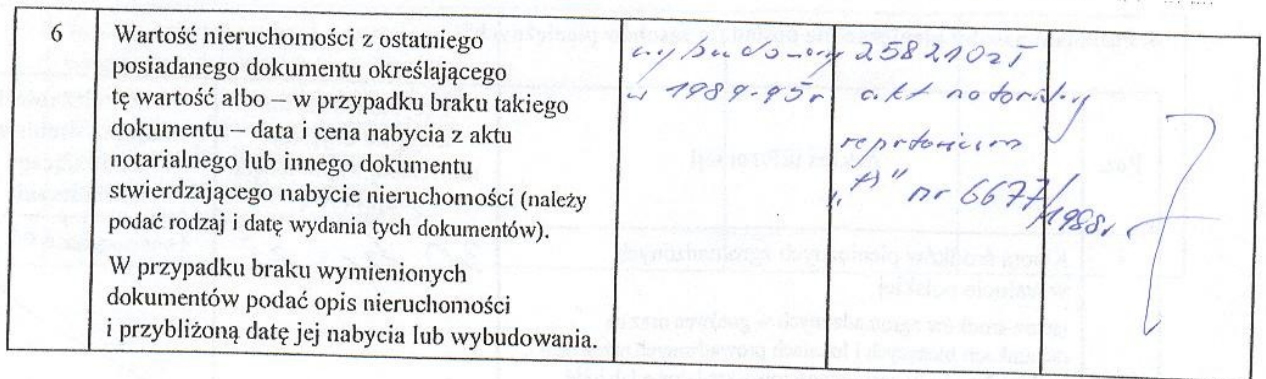 6
Wartość nieruchomości z ostatniego
posiadanego dokumentu określającego
tę wartość albo – w przypadku braku takiego
dokumentu – data i cena nabycia z aktu
notarialnego lub innego dokumentu
stwierdzającego nabycie nieruchomości (należy
podać rodzaj i datę wydania tych dokumentów).
W przypadku braku wymienionych
dokumentów podać opis nieruchomości
i przybliżoną datę jej nabycia lub wybudowania.
wybudowany
w 1989-95r
258210zł
akt notarialny
repertorium
„A" nr 6677/1988r.